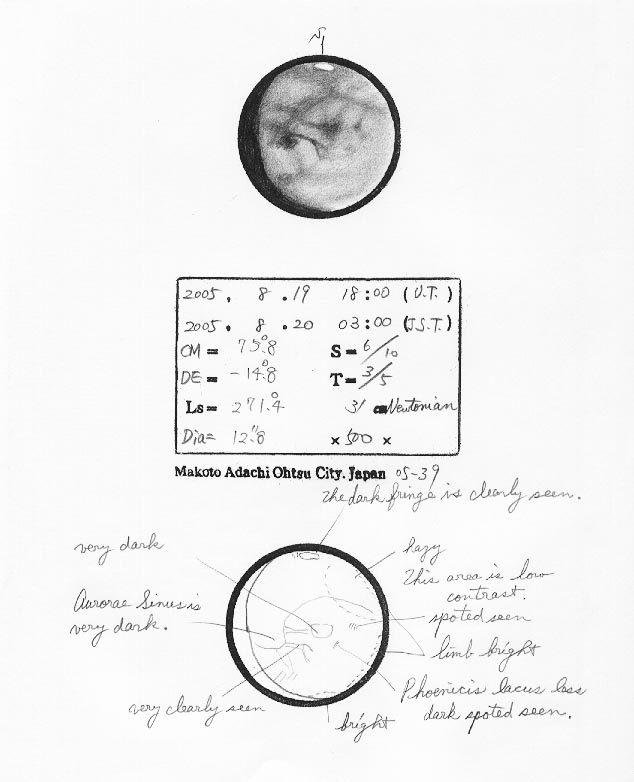 N
2005. 8 .19 18:00 (U.T.)
2005. 8 .20 03:00 (J.S.T)
CM = 75.°8 S = 6/10
DE = -14.°8 T = 3/5
Ls = 271.°4 31 cm Newtonian
Dia = 12."8 × 500 ×
Makoto Adachi Ohtsu City. Japan 05-39
The dark fringe is clearly seen.
very dark
hazy
This area is low
contrast.
Aurorae Sinus is
very dark.
spoted seen
limb bright
Phoenicis lacus less
dark spoted seen.
very clearly seen
bright